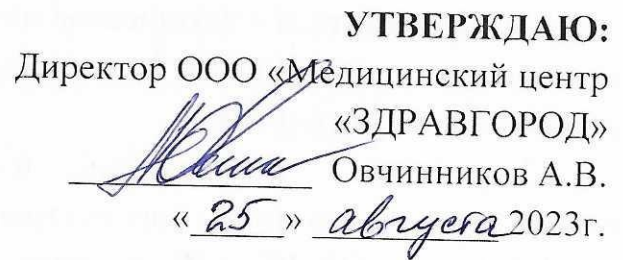 УТВЕРЖДАЮ:
Директор ООО «Медицинский центр
«ЗДРАВГОРОД»
Овчинников А.В.
« 25 » августа 2023г.